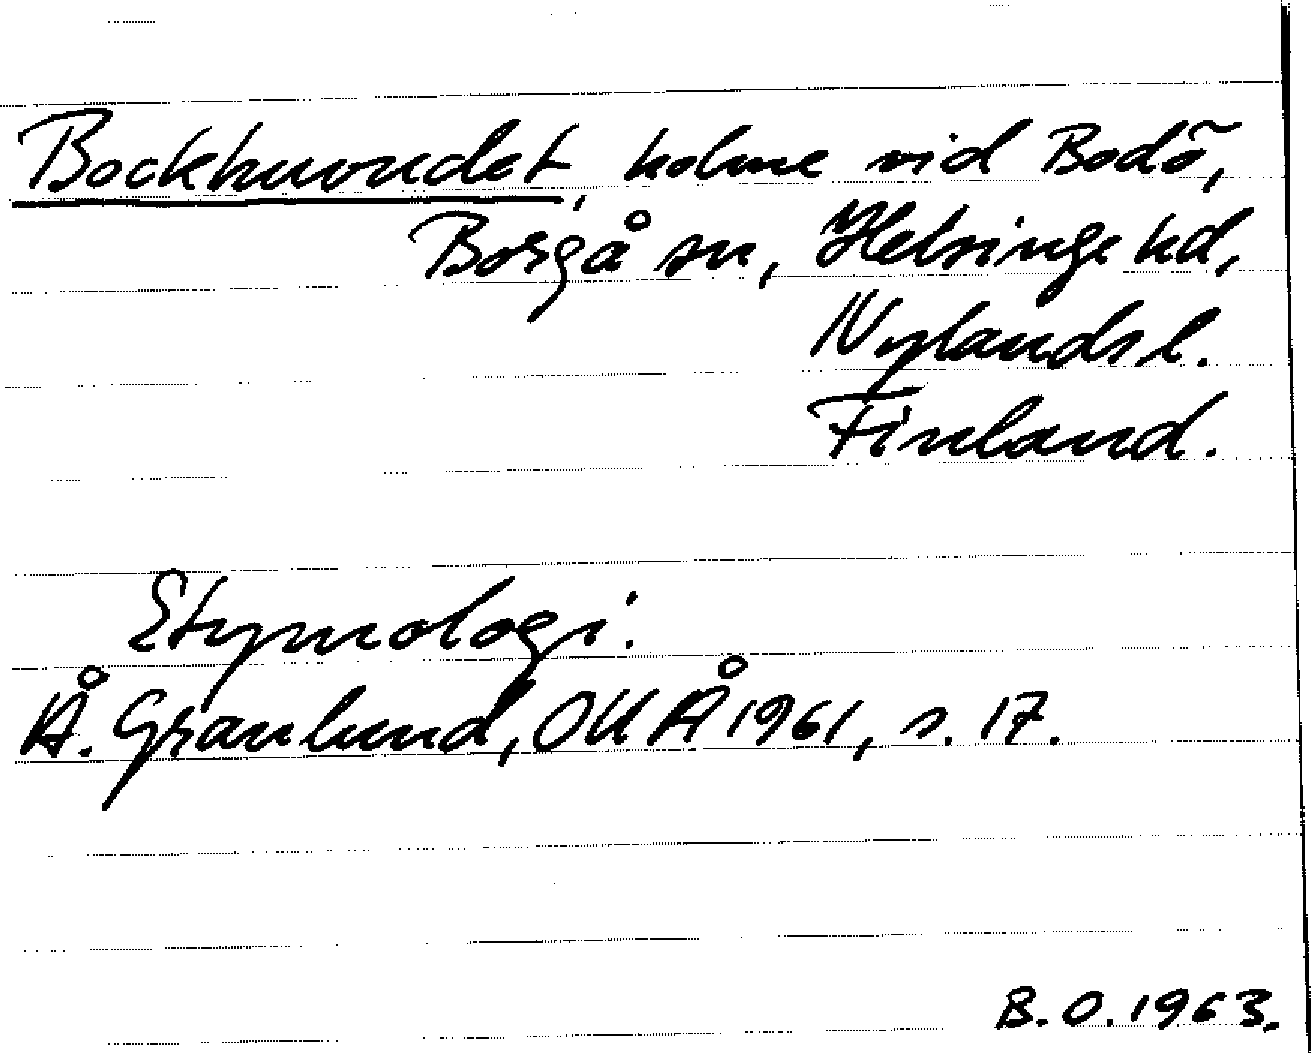 Bockhuvudet, holme vid Bodö,
Borgå sn, Helsinge hd,
Nylands l.
Finland.
Etymologi:
Å. Granlund, OUÅ 1961, s. 17.
B. O. 1963.